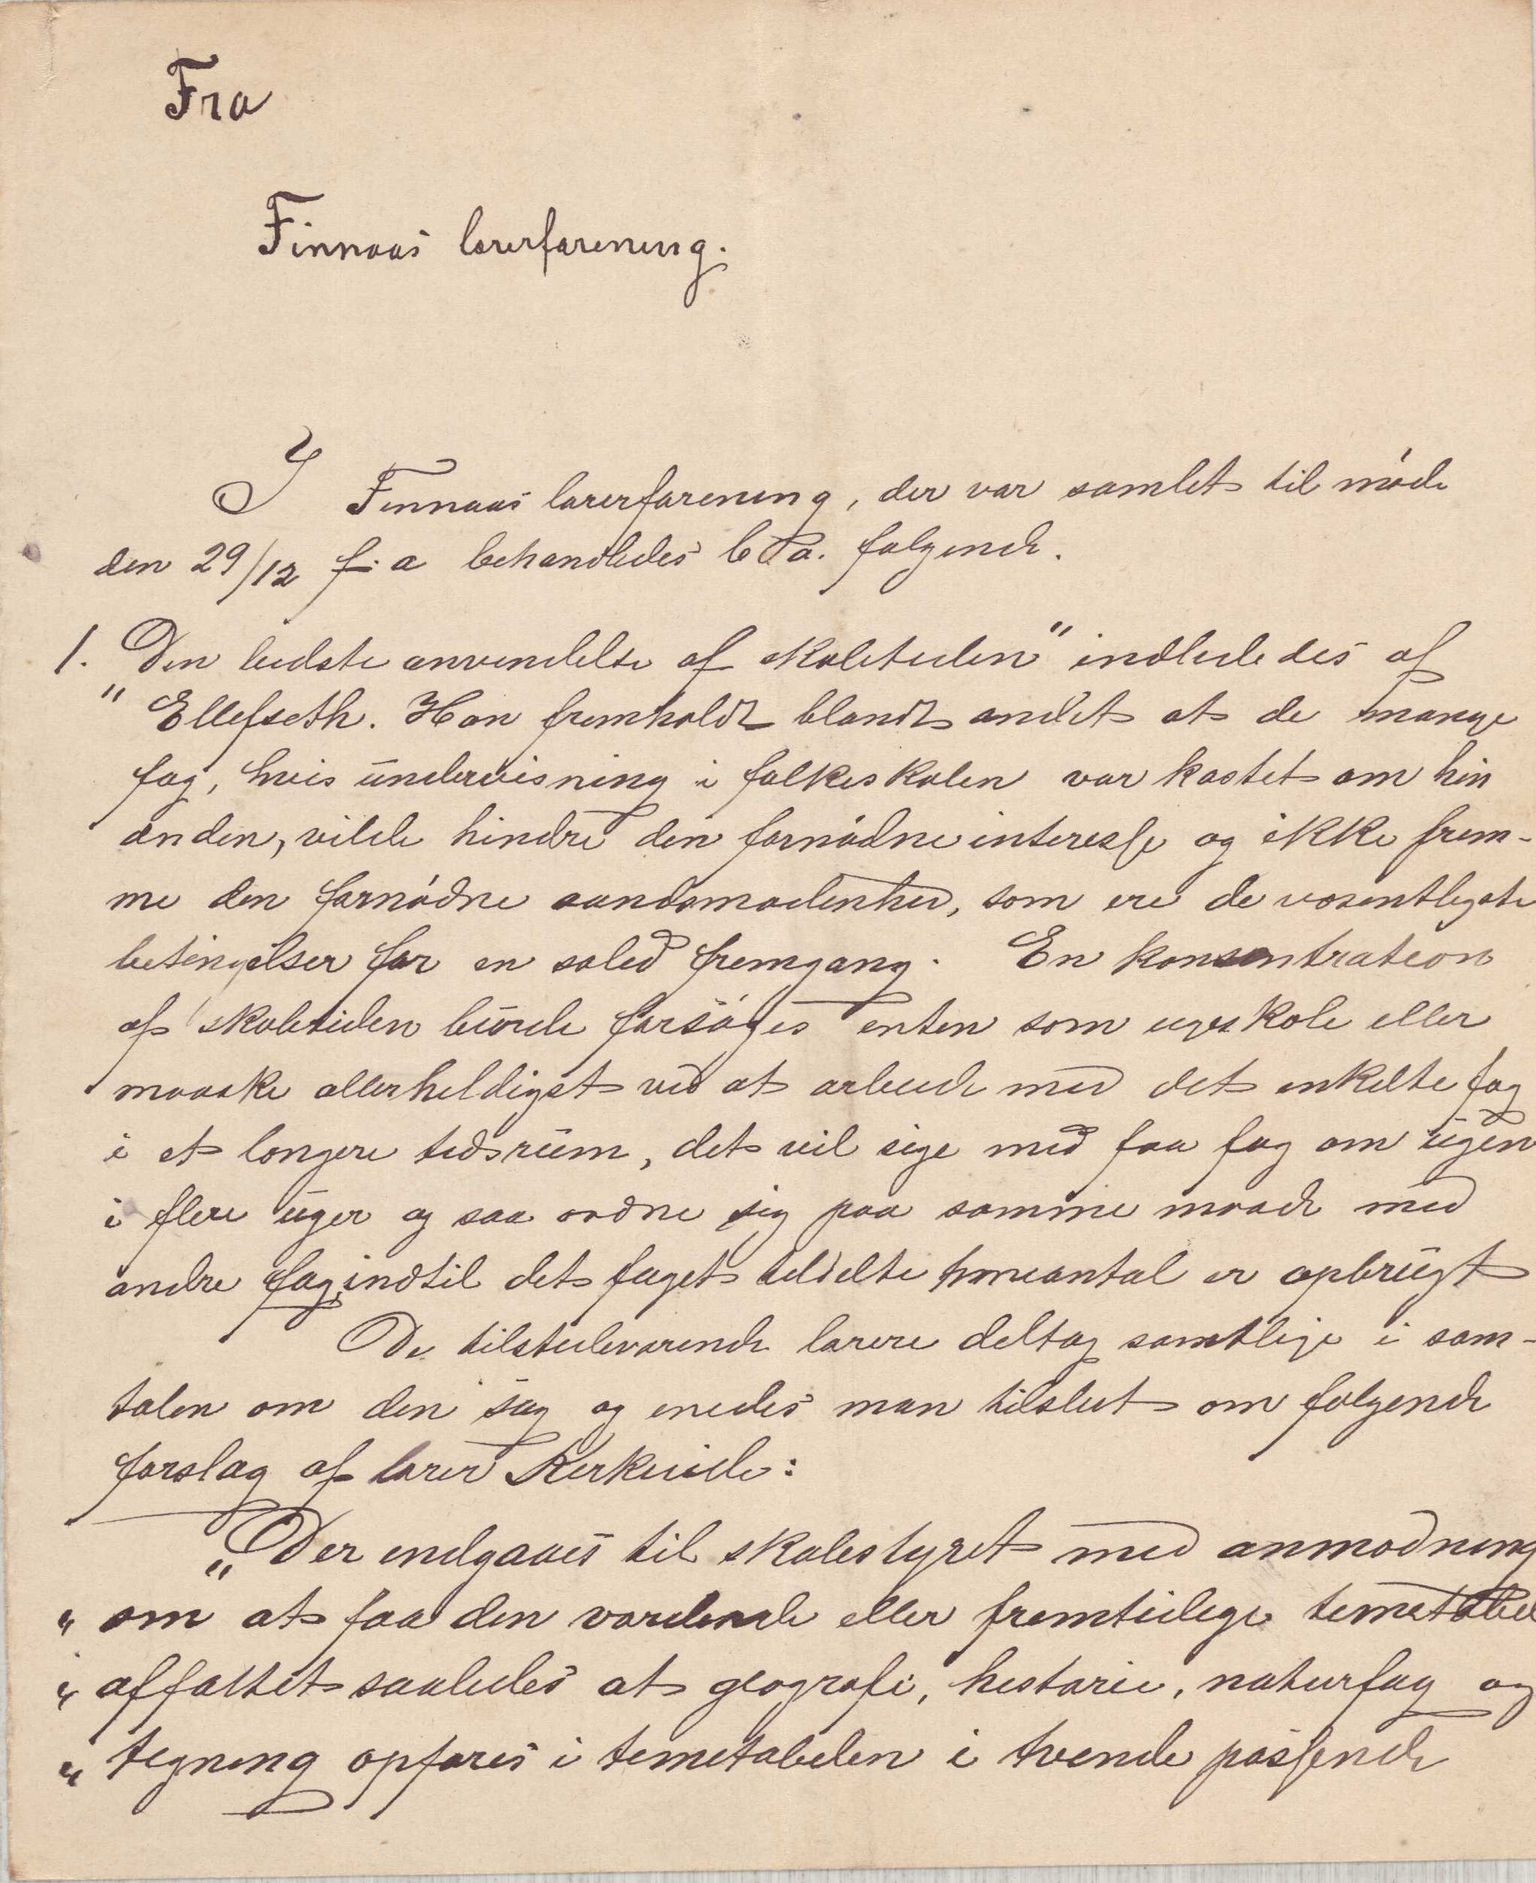 Fra
Finnaas lærerforening.
I Finnaas lærerforening, der var samlet til møde
den 29/12 f. a behandledes bl. a. følgende.
1. Den bedste anvendelse af skoletiden" indlededes af
" Ellefseth. Han fremholdt blandt andet at de mange
fag, hvis undervisning i folkeskolen var kastet om hin
anden, vilde hindre den fornødne interesse og ikke frem-
me den fornødne aandsmodenhed, som ere de væsentligste
betingelser for en solid fremgang. En konsentration
af skoletiden burde forsøges enten som ugeskole eller
maaske allerheldigst ved at arbeide med det enkelte fag
i et længere tidsrum, det vil sige med faa fag om ugen
i flere uger og saa ordne sig paa samme maade med
andre fag, indtil det faget tildelte timeantal er opbrugt
De tilstedeværende lærere deltog samtlige i sam-
talen om den sag og enedes man tilslut om følgende
forslag af lærer Kirkeide:
„Der indgaaes til skolestyret med anmodning
„ om at faa den vordende eller fremtidige timetabel
„ affattet saaledes at geografi, historie, naturfag og
„ tegning opføres i timetabelen i tvende passende